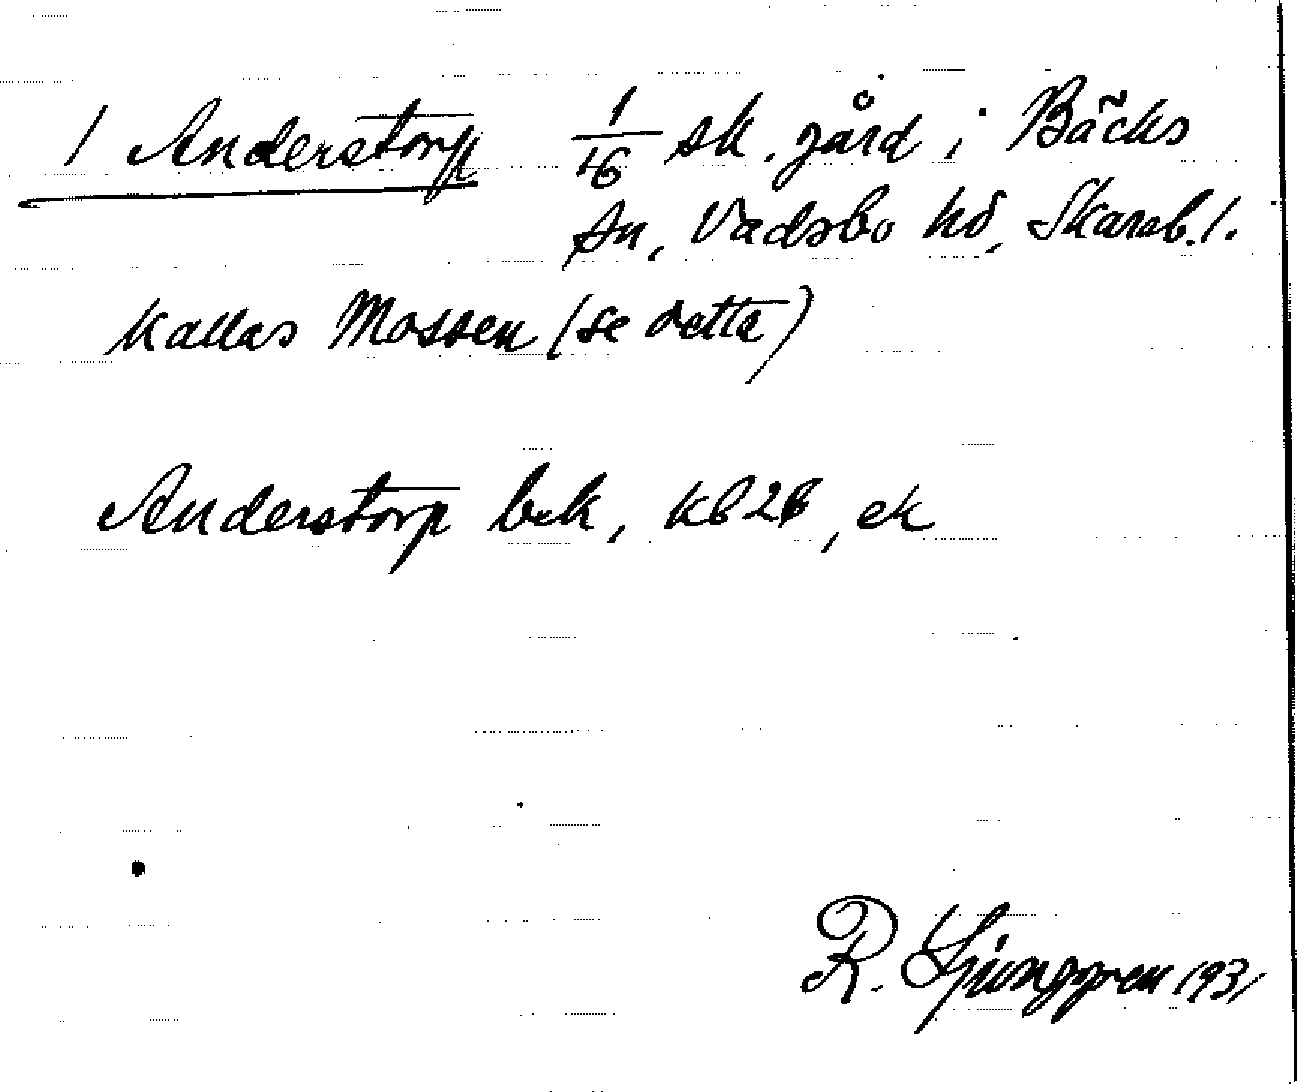 1 Anderstorp 1/16 sk. gård i Bäcks
sn, Vadsbo hd, Skarab. l.
kallas Mossen (se detta)
Anderstorp bek, kb 2B, ek
R. Ljunggren 1931